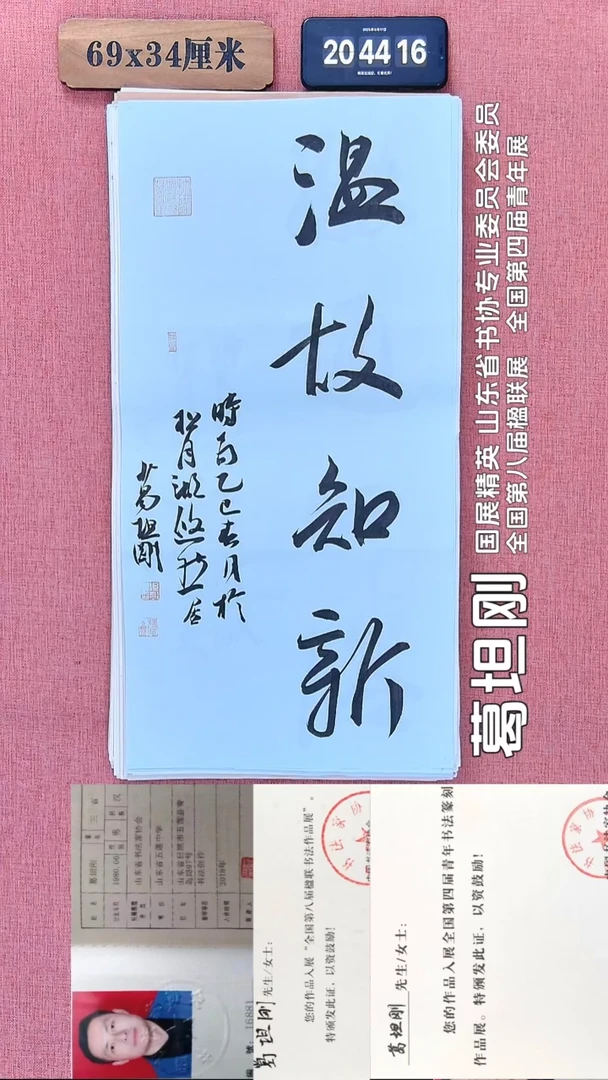 69x34厘米
20 44 16
温故知新
時間乙巳春月於
松月湖悠然居
葛坦刚
国展精英 山东省书协专业委员会委员
全国第八届楹联展 全国第四届青年展
葛坦刚
山东省书法家协会
山东省五莲中学
书法创作
2018年
16881
葛坦刚 先生/女士:
您的作品入展“全国第八届楹联书法作品展”。
特颁发此证，以资鼓励!
葛坦刚 先生/女士:
您的作品入展全国第四届青年书法篆刻
作品展。特颁发此证，以资鼓励!